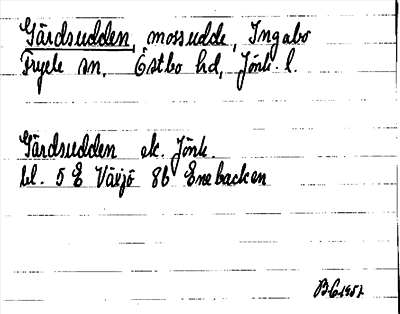 Gärdsudden, mossudde, Ingabo
Fryele sn, Östbo hd, Jönk. l.
Gärdsudden ek. Jönk.
bl. 5 E Växjö 8b Enebacken